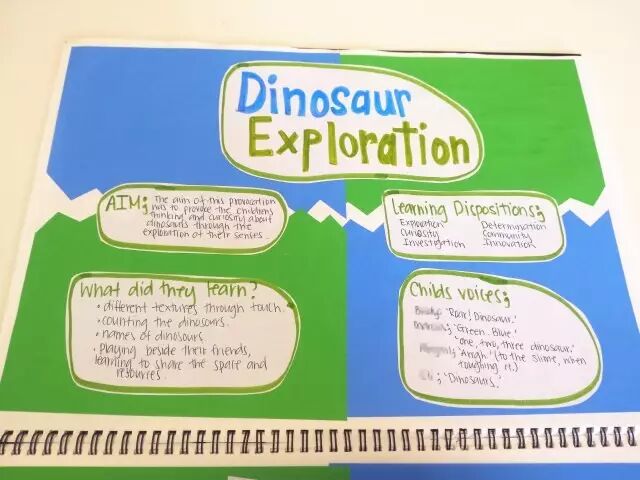 Dinosaur
Exploration
AIM; The aim of this provocation
was to provoke the childrens
thinking and curiosity about
dinosaurs through the
exploration of their senses.
Learning Dispositions;
Exploration Determination
Curiosity Community
Investigation Innovation
What did they learn?
• different textures through touch.
• counting the dinosours.
• names of dinosours.
• playing beside their friends,
learning to share the space and
resources.
Childs voices;
'Roar! Dinosaur.'
; 'Green. Blue'
'one, two, three dinosaur.'
; 'Arrgh.' (to the slime, when
toughing it.)
; 'Dinosaurs.'